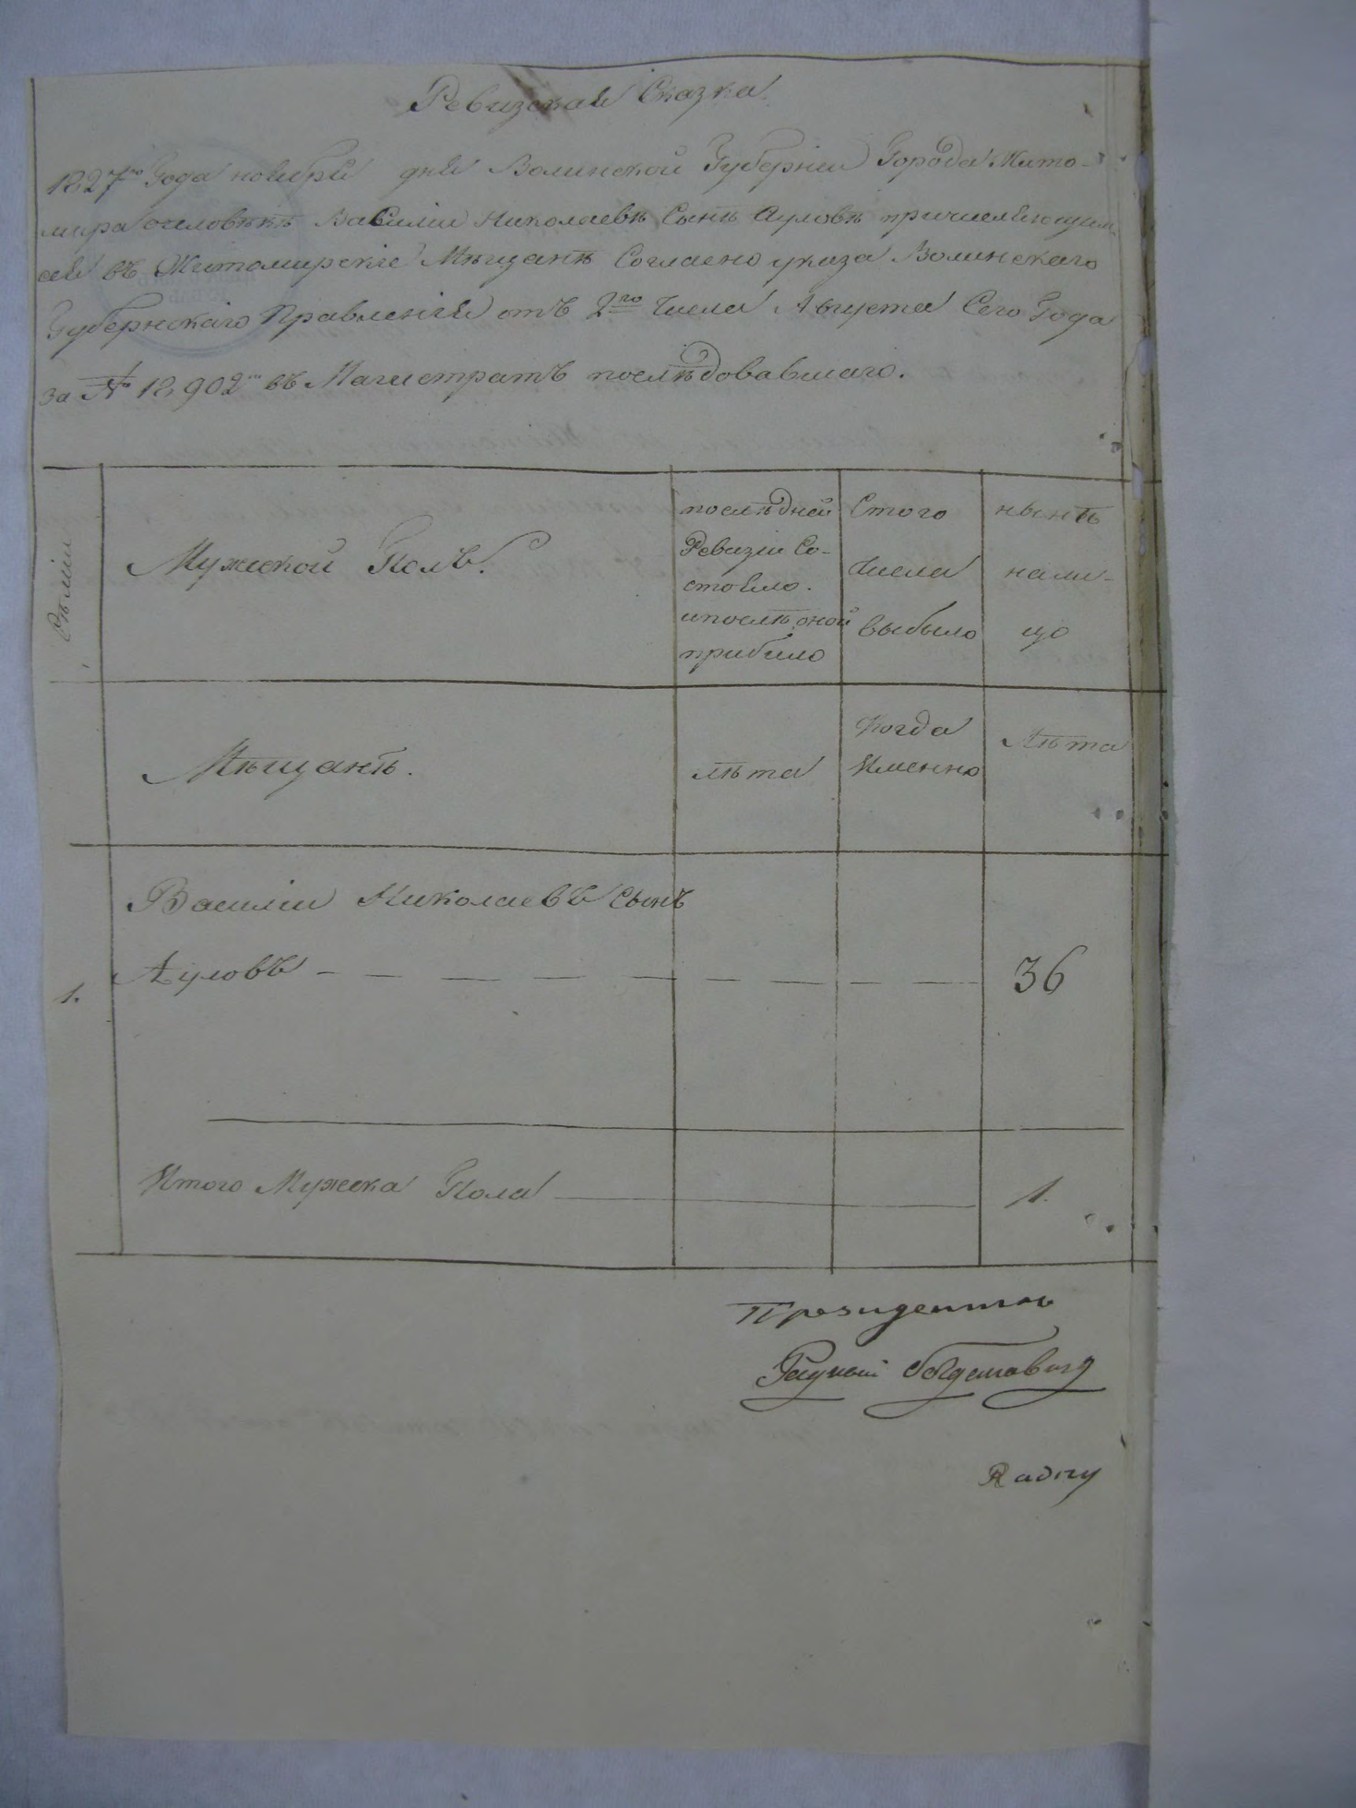 Ревизская Сказка
1827го Года ноября дня Волинской Губернии Города Жито-
мира о человѣкѣ Василіи Николаевѣ Сынѣ Ауловѣ причисляющим
ся въ Житомирскіе Мѣщанѣ Согласно указа Волинскаго
Губернскаго Правленія отъ 2го Числа Августа Сего Года
за № 18,902м въ Магистратъ послѣдовавшаго.
Семіи
Мужеской Полъ.
послѣдней
Ревизіи Со-
стояло.
и послѣ оной
прибило
Стого
Числа
выбыло
нынѣ
нали-
цо
Мѣщанѣ.
лѣта
Когда
Именно
Лѣта
Василіи Николаевъ Сынъ
1. Ауловъ 36
Итого Мужска Пола 1.
Президентъ
Radny